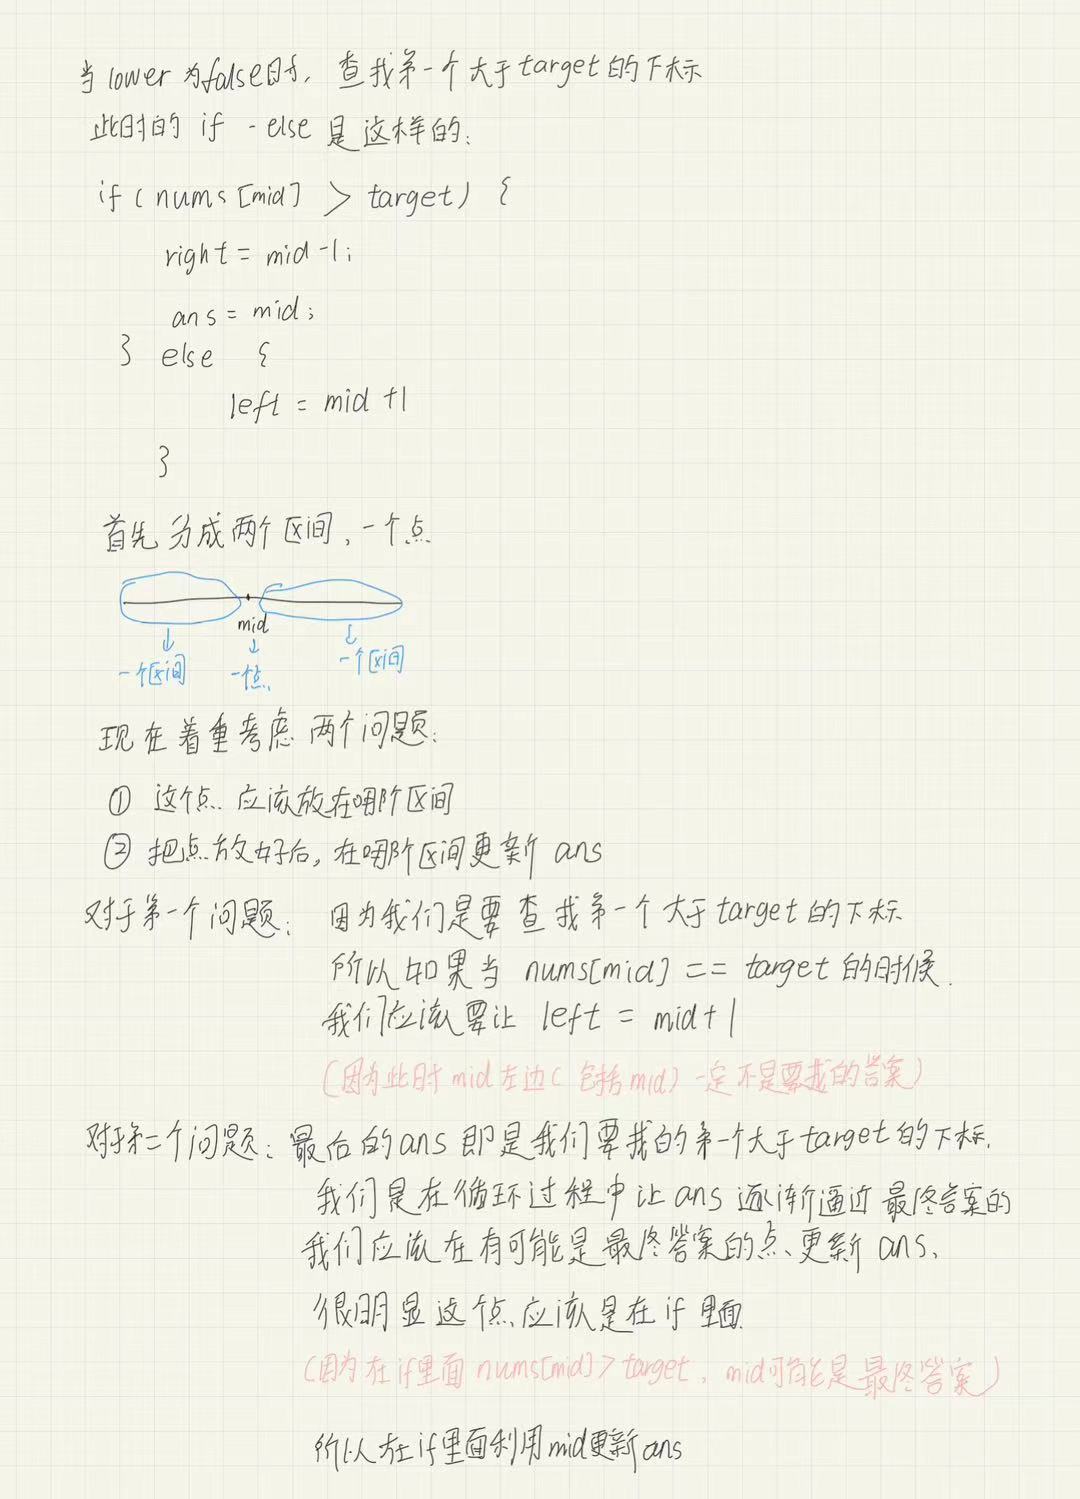 当lower为false时，查找第一个大于target的下标
此时的 if -else 是这样的：
if(nums[mid] > target) {
right = mid-1;
ans = mid;
} else {
left = mid+1
}
首先分成两个区间，一个点
mid
一个区间 一个点 一个区间
现在着重考虑两个问题：
① 这个点应该放在哪个区间
② 把点放好后，在哪个区间更新 ans
对于第一个问题：因为我们是要查找第一个大于target的下标
所以如果当 nums[mid] == target的时候.
我们应该要让 left = mid+1
(因为此时mid左边(包括mid)一定不是要找的答案)
对于第二个问题：最后的ans即是我们要找的第一个大于target的下标.
我们是在循环过程中让ans逐渐逼近最终答案的
我们应该在有可能是最终答案的点更新 ans.
很明显这个点应该是在 if 里面
(因为在if里面 nums[mid]>target，mid可能是最终答案)
所以在if里面利用mid更新ans